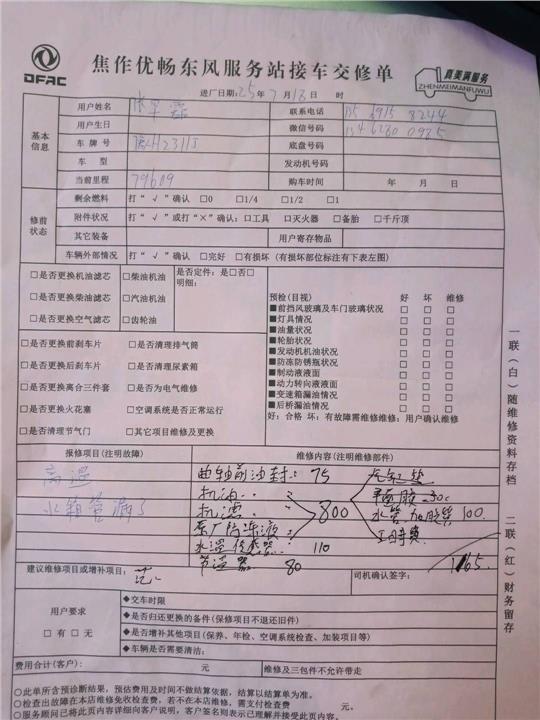 DFAC
焦作优畅东风服务站接车交修单
真美满服务
ZHENMEIMANFUWU
进厂日期:25年7月18日 时
基本信息
用户姓名
联系电话 8244
用户生日
微信号码 0985
车 牌 号
底盘号码
车 型
发动机号码
当前里程 79609
购车时间 年 月 日
修前状态
剩余燃料 打“√”确认 □0 □1/4 □1/2 □1
附件状况 打“√”或打“×”确认:□工具 □灭火器 □备胎 □千斤顶
其它装备
用户寄存物品
车辆外部情况 打“√”确认 □完好 □有损坏 (有损坏部位标注有下表左图)
□是否更换机油滤芯 □柴油机油 是否定件:是□否□
明细:
□是否更换柴油滤芯 □汽油机油
□是否更换空气滤芯 □齿轮油
□是否更换前刹车片 □是否清理排气筒
□是否更换后刹车片 □是否清理尿素箱
□是否更换离合三件套 □是否为电气维修
□是否更换火花塞 □空调系统是否正常运行
□是否清理节气门 □其它项目维修及更换
预检(目视) 好 坏 维修
■前挡风玻璃及车门玻璃状况 □ □ □
■灯具情况 □ □ □
■油量状况 □ □ □
■轮胎状况 □ □ □
■发动机机油状况 □ □ □
■防冻防锈瓶状况 □ □ □
■制动液液面 □ □ □
■动力转向液液面 □ □ □
■变速箱漏油情况 □ □ □
■后桥漏油情况 □ □ □
好:合格 坏:有故障需维修维修:用户确认维修
一联(白)随维修资料存档 二联(红)财务留存
报修项目(注明故障)
维修内容(注明维修部件)
高温
水箱管漏了
曲轴前油封: 75
机油
机滤
原厂防冻液
800
水温传感器: 110
节温器 80
平面胶 30
水管加胶管 100.
工时费
1165.
建议维修项目或增补项目:
司机确认签字:
用户要求
□ 有 □ 无
◆交车时限
◆是否归还更换的备件(保修项目不退还旧件)
◆是否增补其他项目(保养、年检、空调系统检查、加装项目等)
◆车辆是否需要清洁:
费用合计(客户): 元
维修及三包件不允许带走
○此单所含预诊断结果,预估费用及时间不做结算依据,结算以结算单为准。
○检查出故障在本店维修免收检查费,若不在本店维修,需支付检查费 元
○服务顾问已将此页内容详细向客户说明,客户签名则表示已理解并接受此页内容。